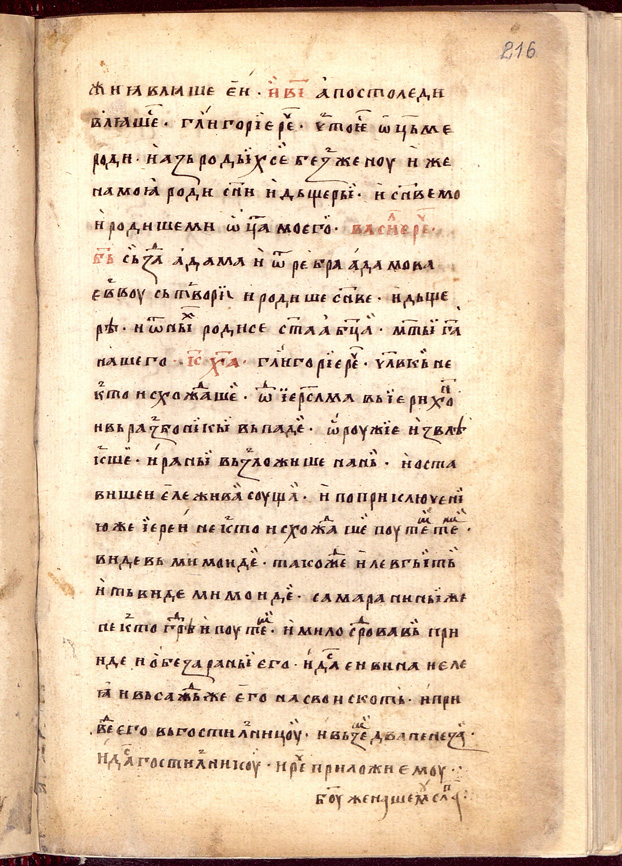 216
жнꙗвлꙗше ен҃ · и҆ в҃і а҆постоледн
влꙗше · глигорїе рⷱ҇е · что ѡ҃цьме
роди · назь родых се без женоу и же
на моꙗ роди сн҃и и дъщеры · и сн҃ве мо
и родише ми ѡ҃ца моего · васил рⷱ҇е ·
б҃ь съзⷣа адама и ѿ ребра адамова
еввоу сътвори и родише сн҃ве · и дъще
рѣ · и ѿ ныⷯ родисе ст҃аа бц҃а · мт҃ы га҃
нашего · і҃с х҃а · глигорїе рⷱ҇е · чл҃вкь не
кто исхождаше · ѿ їерс҃лма вь їерихоⁿ
и вь разбоникы вьпаде · ѡроужїе извлѣ
кше · и раны вьзложише нань · и оста
вишен еле жива соуща · и по приключенї
юже їереи некто исхождаше поутем тем ·
видевь мимоиде · такоже и левгыть
и ть виде мимоиде · самаранинь же
некто греди поутем · и милосрдовавь при
иде и обеза раны его · и дасть ен вина и еле
ꙗ и вьсаждь же его на свои скоть · и при
веде его вь гостилницоу · и вьзем два пенеза ·
и дасть гостилникоу · и рⷱ҇е приложи емоу ·
б҃оу же нашемоу сла҃